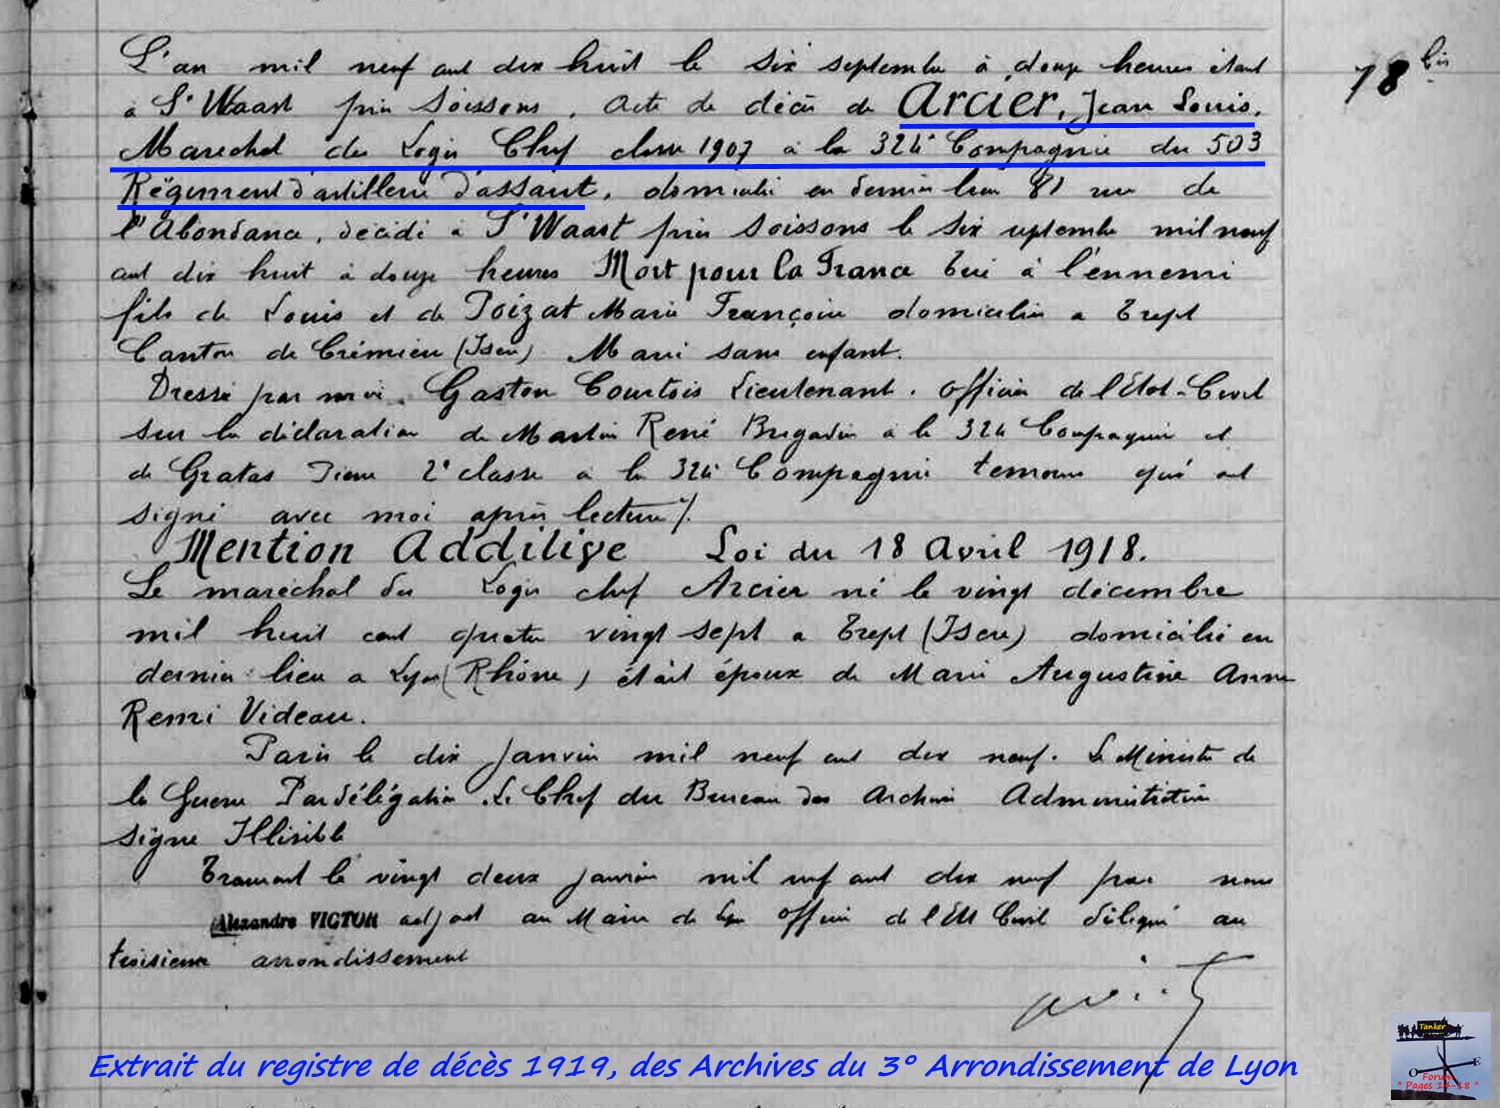 L'an mil neuf cent dix huit le six septembre à douze heures étant
à St Waast près Soissons, acte de décès de Arcier, Jean Louis,
Marechal des Logis Chef classe 1907 à la 324e Compagnie du 503
Régiment d'artillerie d'assaut, domicilié en dernier lieu 81 rue de
l'Abondance, décédé à St Waast près Soissons le six septembre mil neuf
cent dix huit à douze heures Mort pour la France Tué à l'ennemi
fils de Louis et de Poizat Marie Françoise domiciliés à Trept
Canton de Crémieu (Isère) Marié sans enfant.
Dressé par moi, Gaston Courtois Lieutenant, officier de l'Etat-Civil
sur la déclaration de Martin René Brigadier à la 324 Compagnie et
de Gratas 2e classe à la 324e Compagnie temoins qui ont
signé avec moi après lecture ./.
Mention Additive Loi du 18 Avril 1918.
Le maréchal des Logis chef Arcier né le vingt décembre
mil huit cent quatre vingt sept à Trept (Isère) domicilié en
dernier lieu à Lyon (Rhône) était époux de Marie Augustine Anne
Remi Videau.
Paris le dix Janvier mil neuf cent dix neuf. Le Ministre de
la Guerre Par délégation, Le Chef du Bureau des Archives Administratives
signé Illisible
Transcrit le vingt deux janvier mil neuf cent dix neuf par nous
Alexandre VICTOR adjoint au Maire de Lyon officier de l'Etat Civil délégué au
troisième arrondissement
78 bis
Extrait du registre de décès 1919, des Archives du 3° Arrondissement de Lyon
Tanker
O E
Forum
" Pages 14-18 "